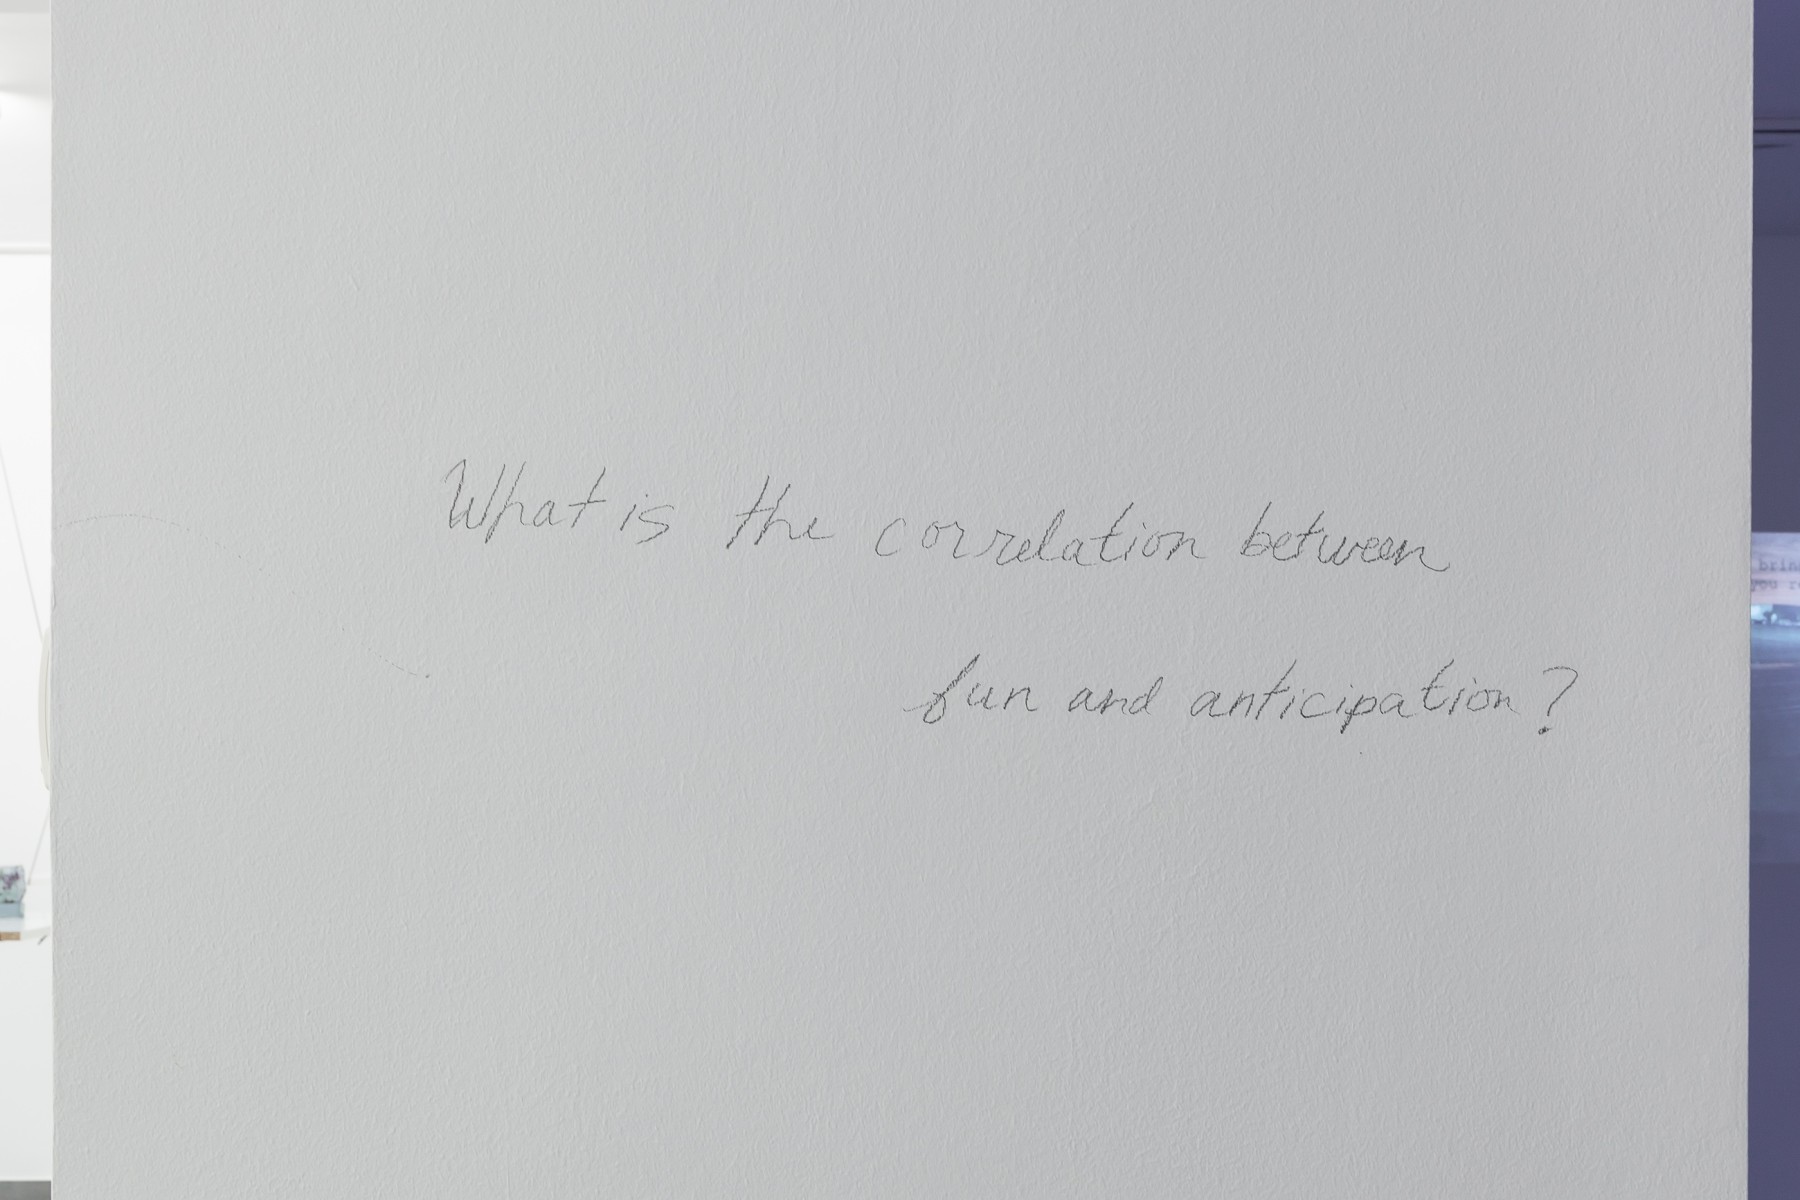 What is the correlation between
fun and anticipation?